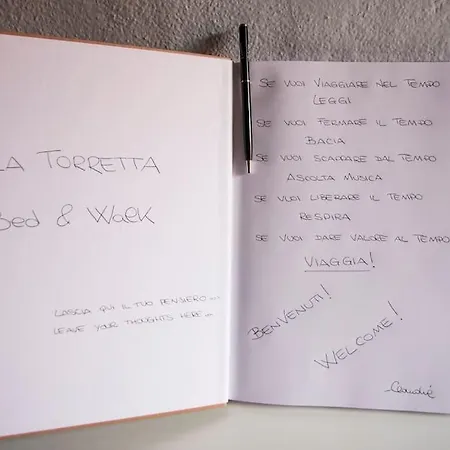 LA TORRETTA
Bed & Walk
LASCIA QUI IL TUO PENSIERO...
LEAVE YOUR THOUGHTS HERE...
SE VUOI VIAGGIARE NEL TEMPO
LEGGI
SE VUOI FERMARE IL TEMPO
BACIA
SE VUOI SCAPPARE DAL TEMPO
ASCOLTA MUSICA
SE VUOI LIBERARE IL TEMPO
RESPIRA
SE VUOI DARE VALORE AL TEMPO
VIAGGIA!
BENVENUTI!
WELCOME!